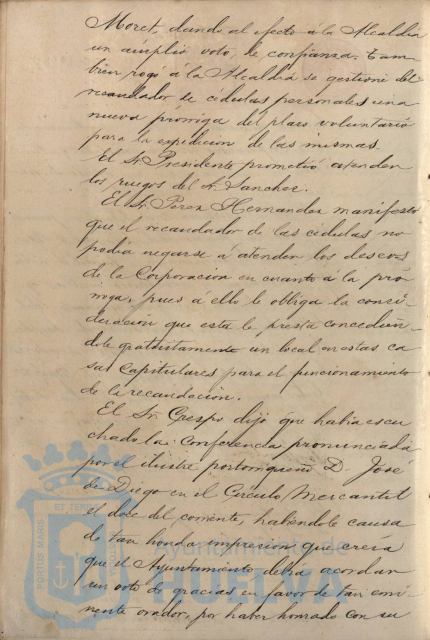 Moret, dando al efecto á la Alcaldía
un amplio voto de confianza. Tam-
bien rogó á la Alcaldia se gestione del
recaudador de cédulas personales una
nueva prórroga del plazo voluntario
para la expedicion de las mismas.
El Sr. Presidente prometió atender
los ruegos del Sr. Sanchez.
El Sr. Perez Hernandez manifestó
que el recaudador de las cedulas no
podia negarse á atender los deseos
de la Corporacion en cuanto á la pró-
rroga, pues á ello le obliga la consi-
deración que esta le presta concedién-
dole gratuitamente un local en estas ca-
sas Capitulares para el funcionamiento
de la recaudacion.
El Sr. Crespo dijo que habia escu-
chado la Conferencia pronunciada
por el ilustre portorriqueño D. José
de Diego en el Círculo Mercantil
el doce del corriente, habiendole causa-
do tan honda impresion que creía
que el Ayuntamiento debía acordar
un voto de gracias en favor de tan emi-
nente orador, por haber honrado con su
Ayuntamiento de
HUELVA
PORTUS MARIS ET TE